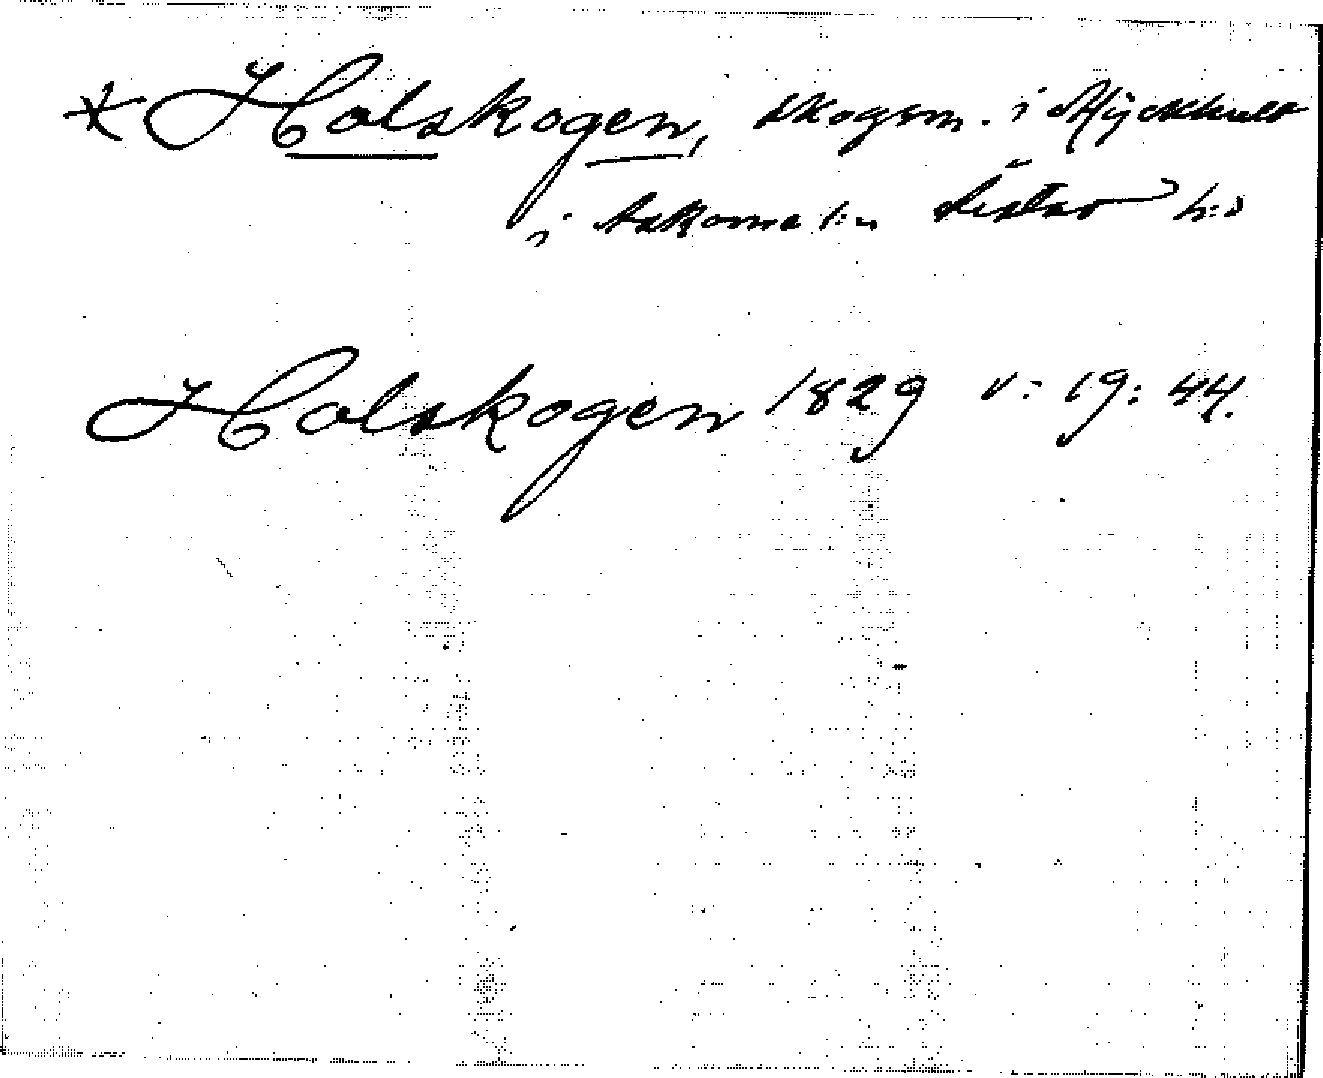 * Halskogen, skogsm. i Myckhult
i Askome s:n Årstad h:d
Halskogen 1829 v: 19: 44.